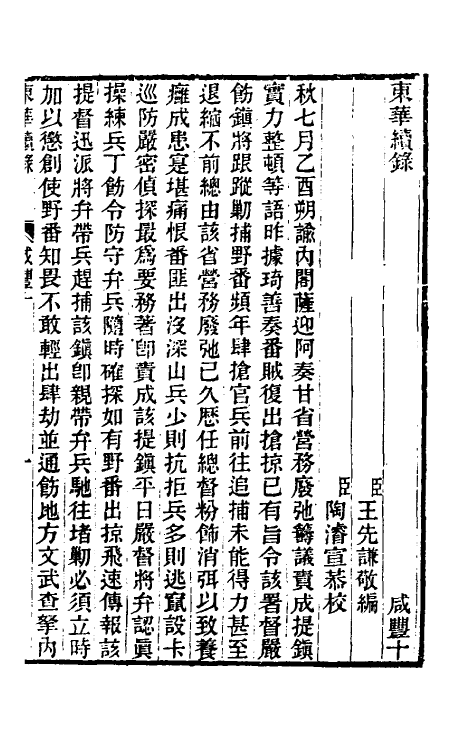 東華續錄　咸豐十
臣王先謙敬編
臣陶濬宣恭校
秋七月乙酉朔諭內閣薩迎阿奏甘省營務廢弛籌議責成提鎭
實力整頓等語昨據琦善奏番賊復出搶掠已有旨令該署督嚴
飭鎭將跟蹤勦捕野番頻年肆搶官兵前往追捕未能得力甚至
退縮不前總由該省營務廢弛已久歷任總督粉飾消弭以致養
癰成患寔堪痛恨番匪出沒深山兵少則抗拒兵多則逃竄設卡
巡防嚴密偵探最爲要務著卽責成該提鎭平日嚴督將弁認眞
操練兵丁飭令防守弁兵隨時確探如有野番出掠飛速傳報該
提督迅派將弁帶兵趕捕該鎭卽親帶弁兵馳往堵勦必須立時
加以懲創使野番知畏不敢輕出肆劫並通飭地方文武查拏內
東華續錄　咸豐十　一